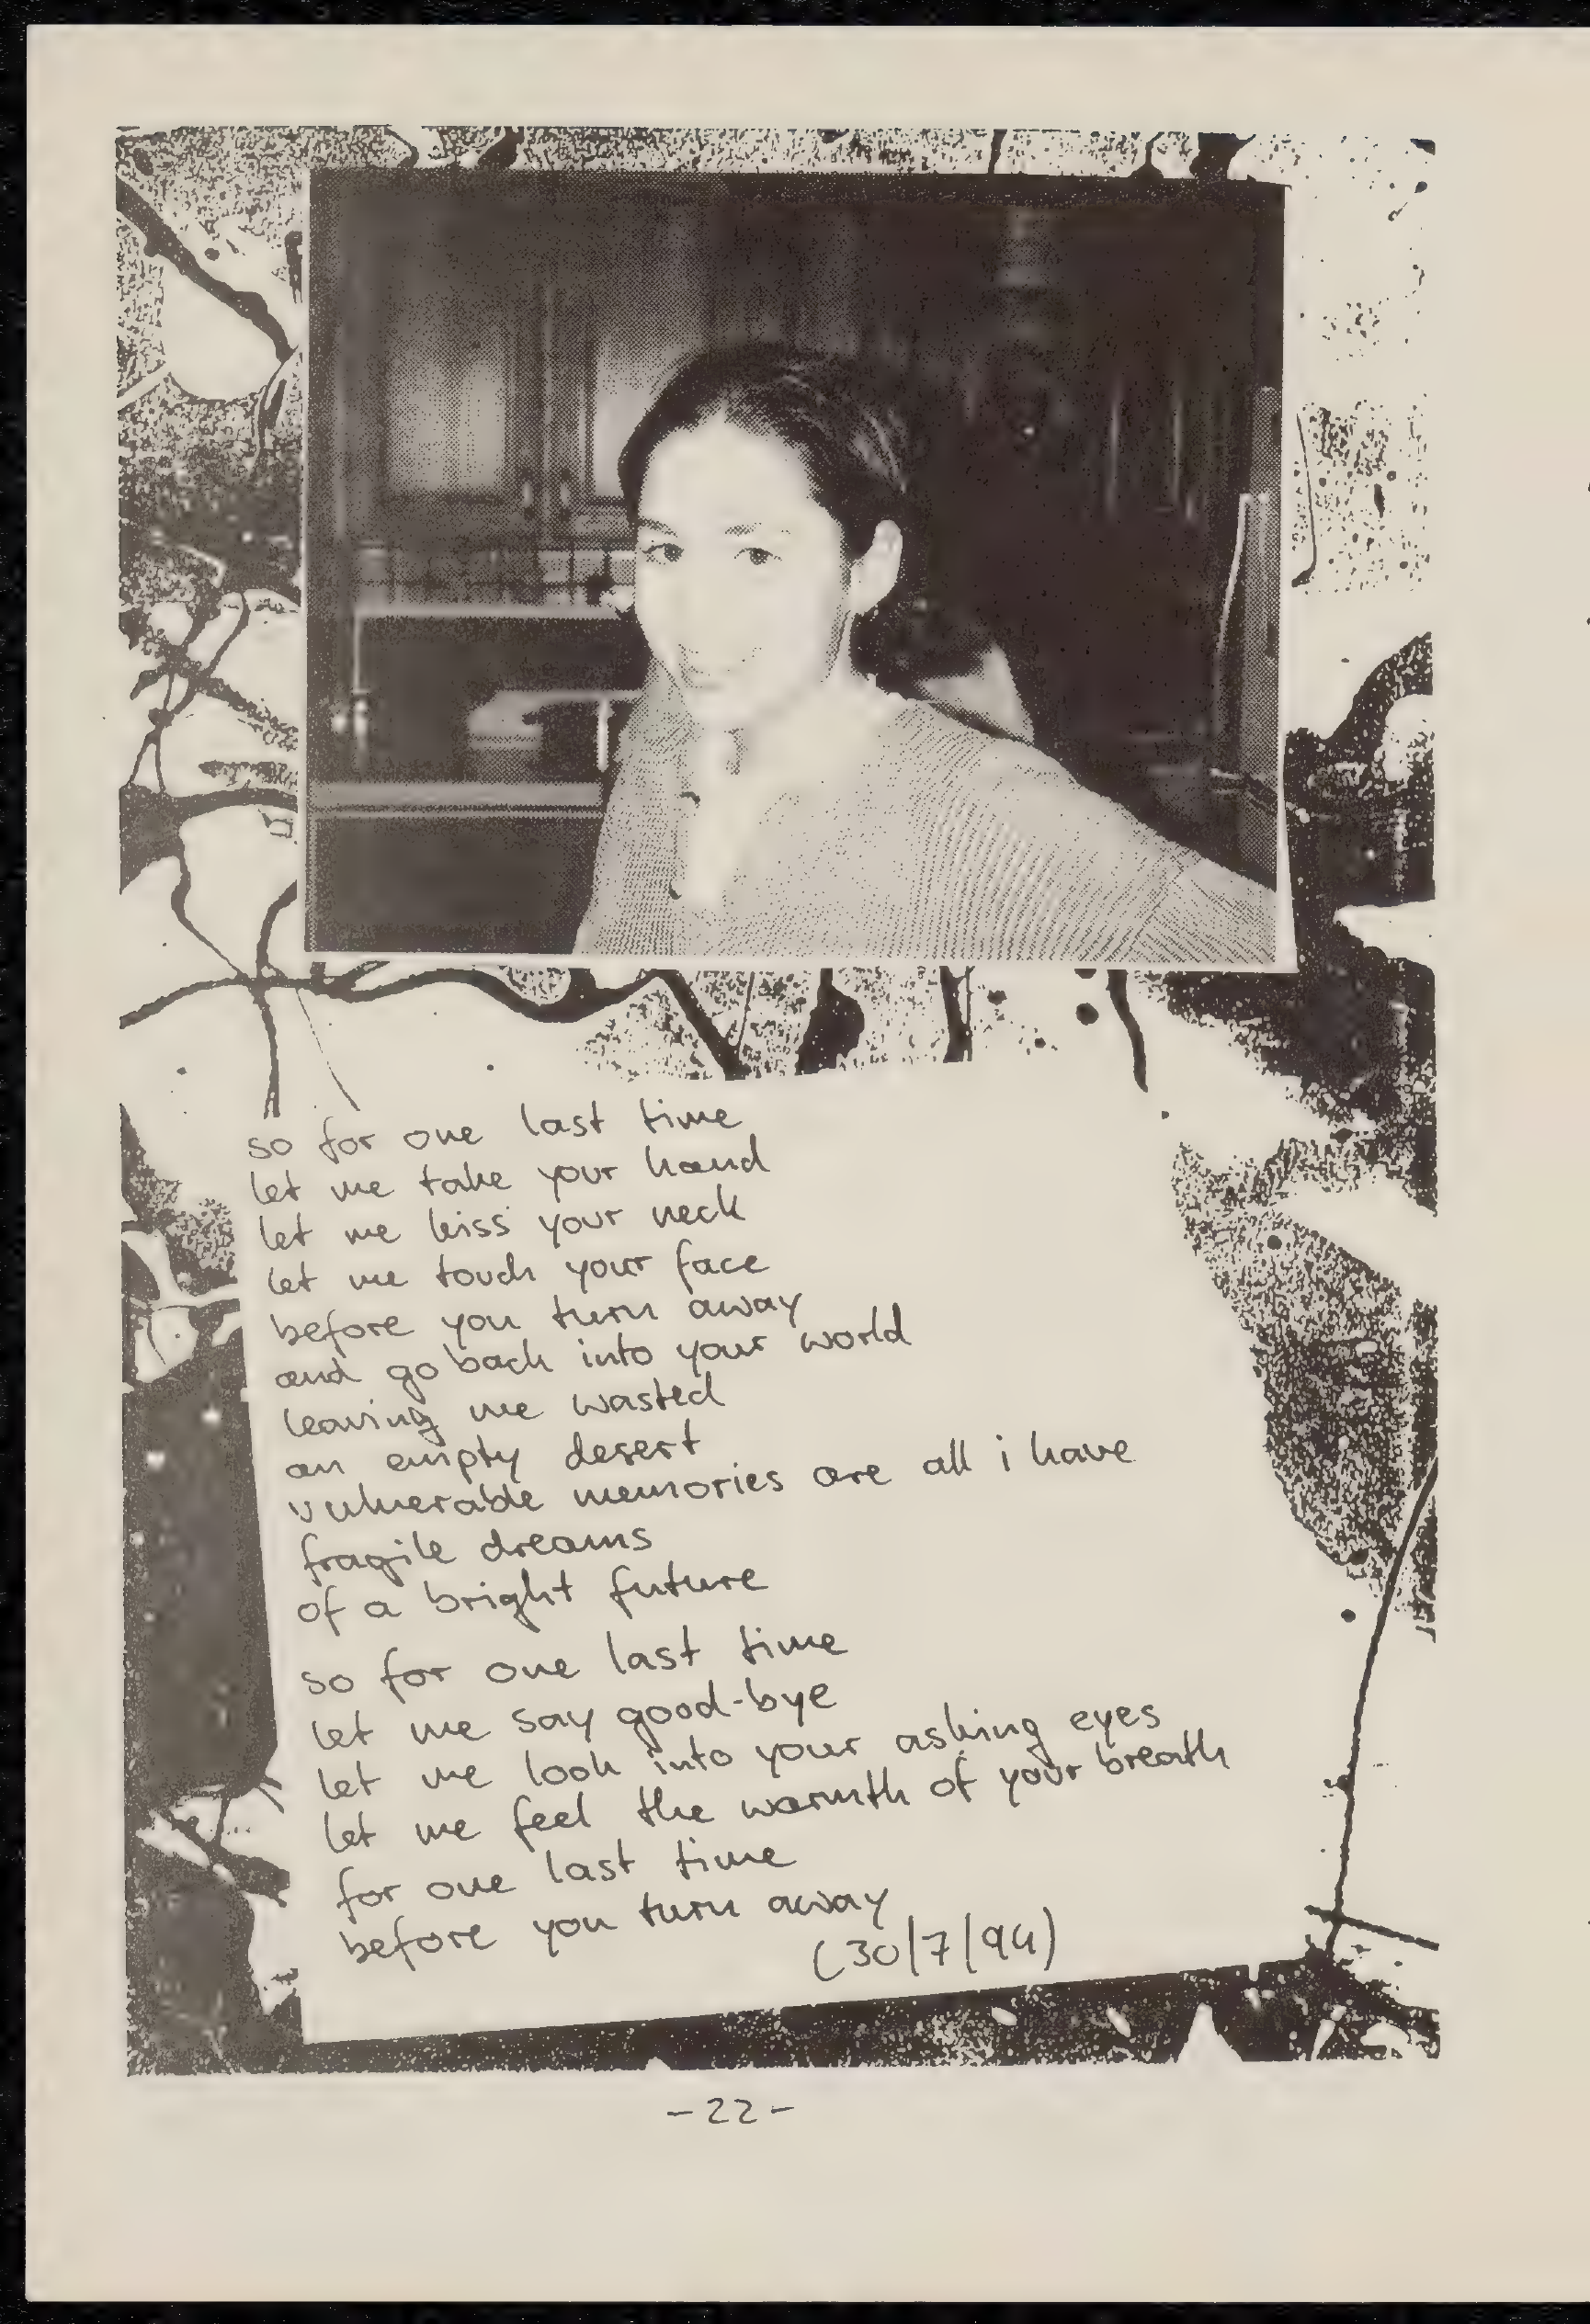 so for one last time
let me take your hand
let me kiss your neck
let me touch your face
before you turn away
and go back into your world
leaving me wasted
an empty desert
vulnerable memories are all i have
fragile dreams
of a bright future
so for one last time
let me say good-bye
let me look into your asking eyes
let me feel the warmth of your breath
for one last time
before you turn away
(30/7/94)
-22-